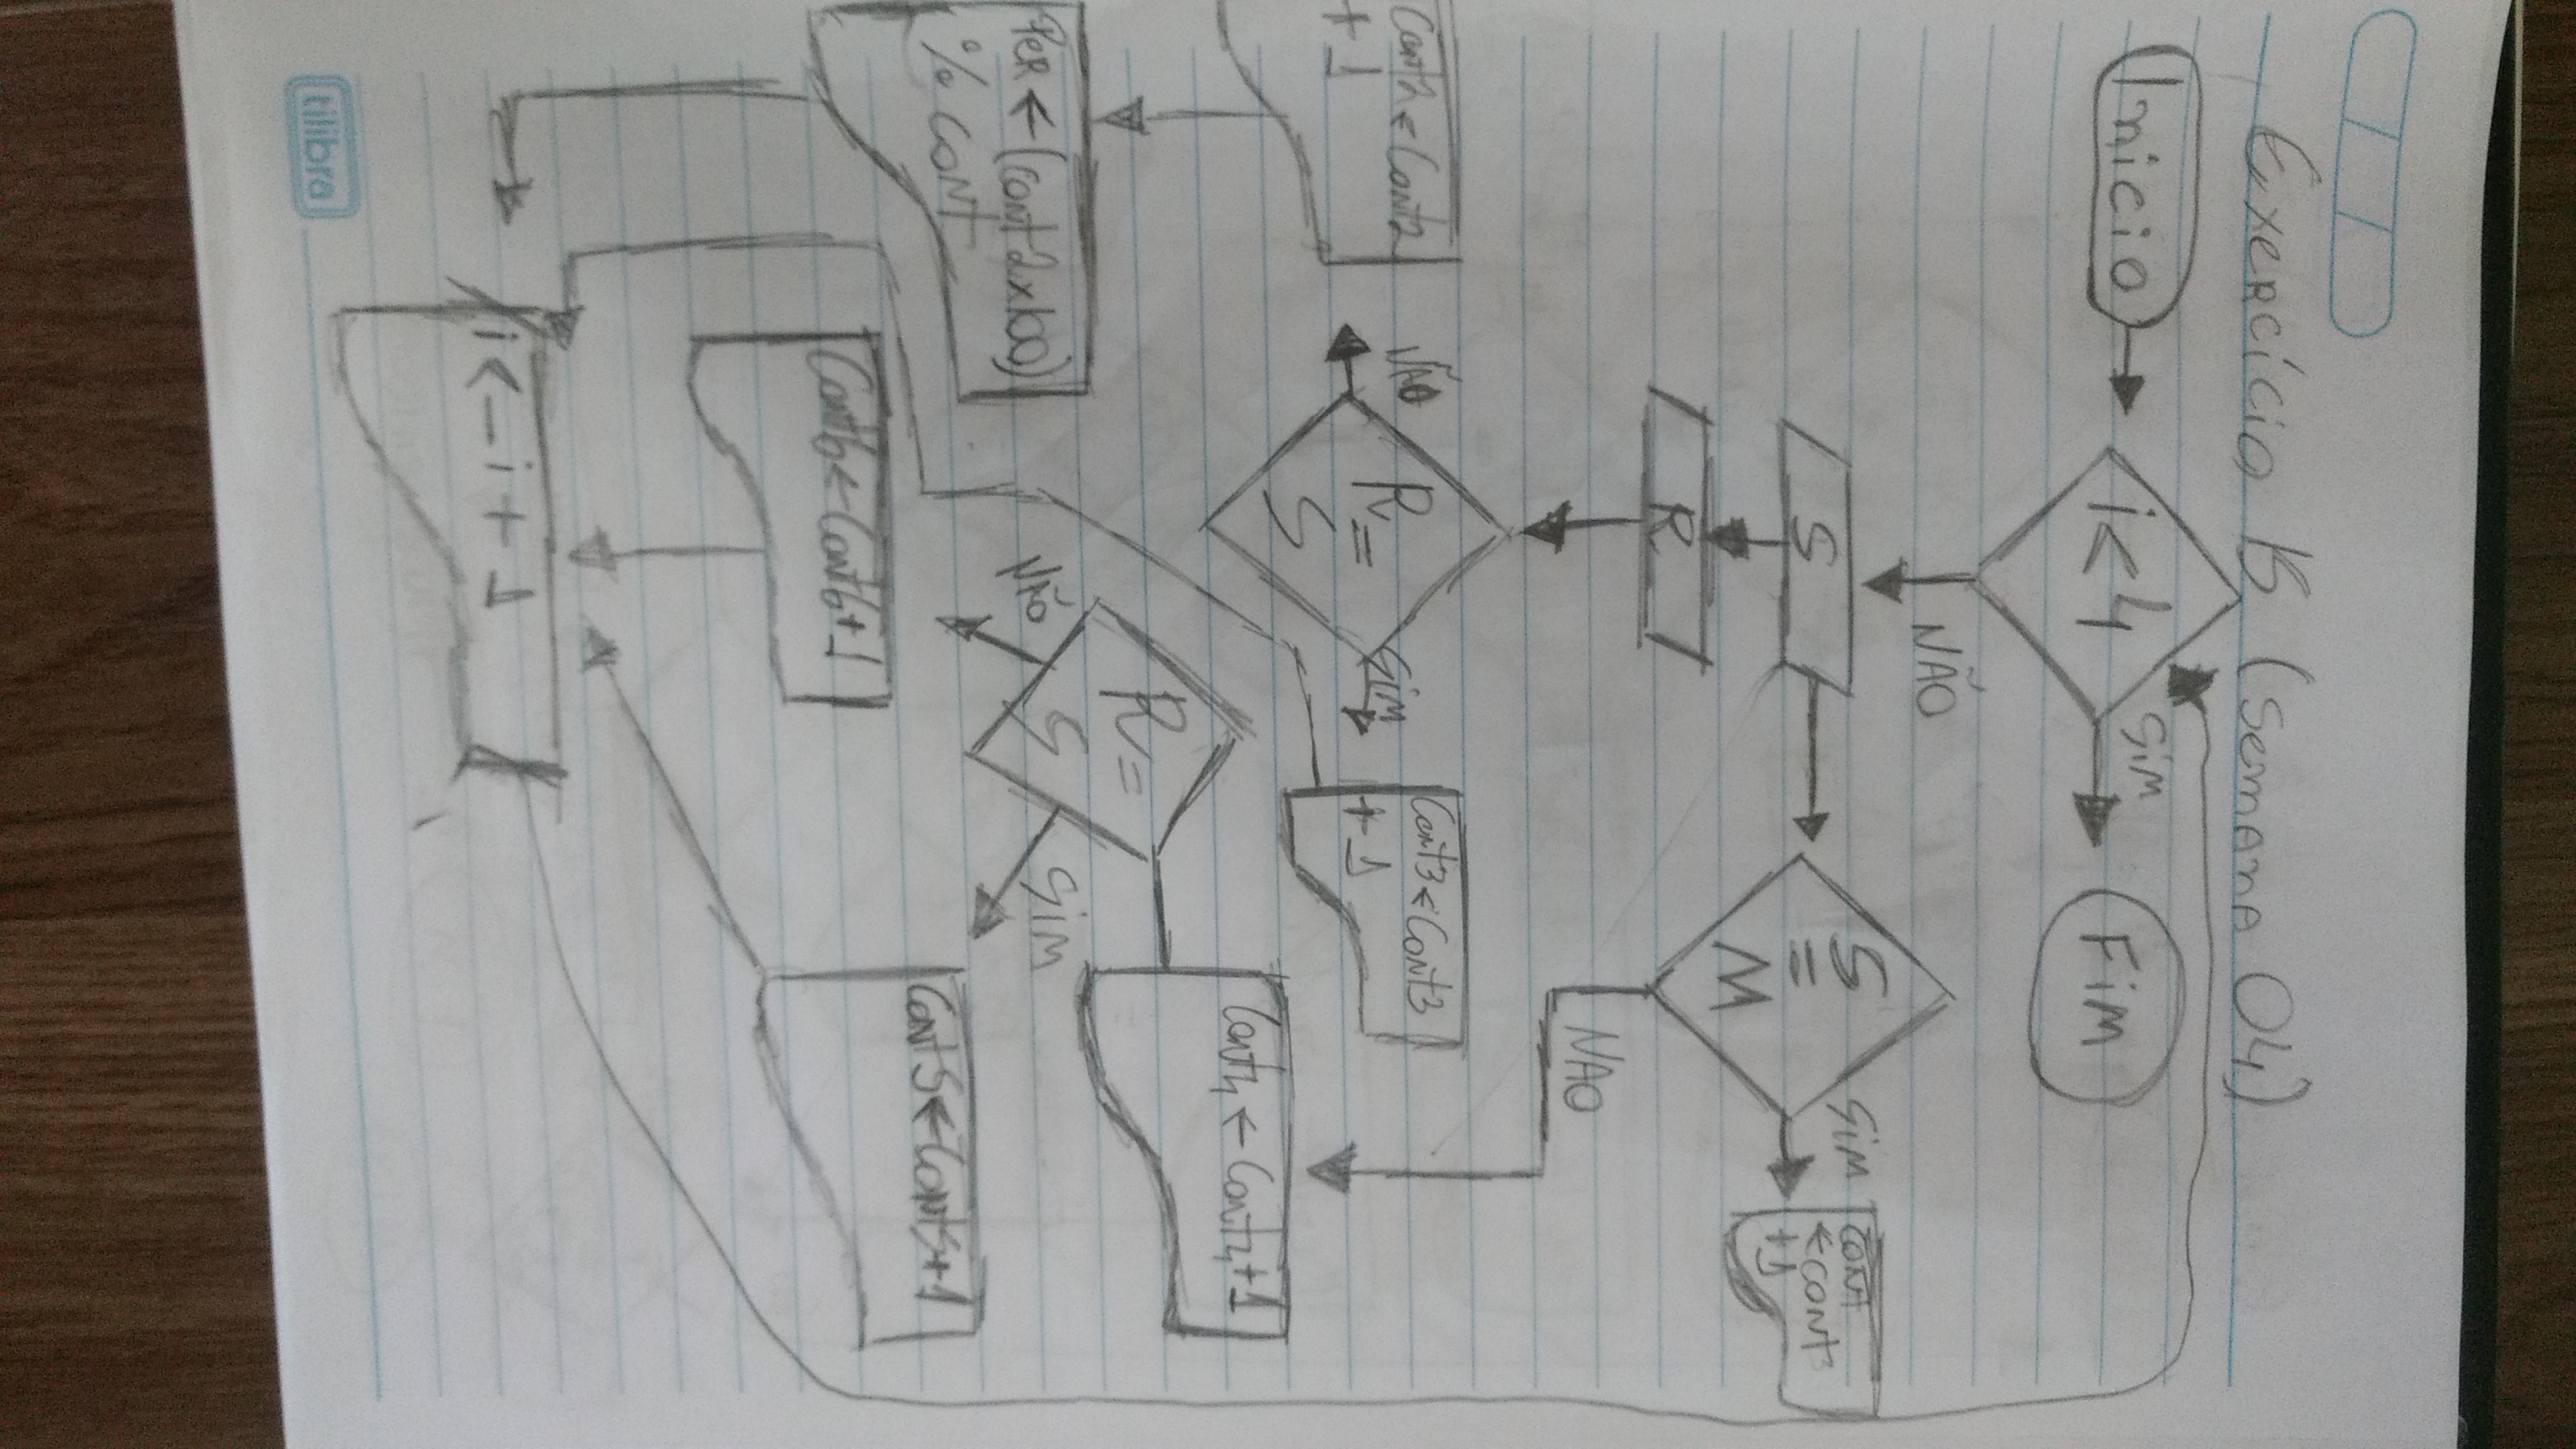 Exercício 15 (Semana 04)
Inicio
i<4
SIM
FIM
NÃO
S
S
=
M
SIM
CONT
←CONT
+1
R
NAO
Cont2←Cont2
+1
NÃO
R=
S
SIM
Cont3←Cont3
+1
Cont4←Cont4+1
R=
S
NÃO
SIM
PER←(cont2x100)
% CONT
Cont5←Cont5+1
Cont6←Cont6+1
i<-i+1
tilibra